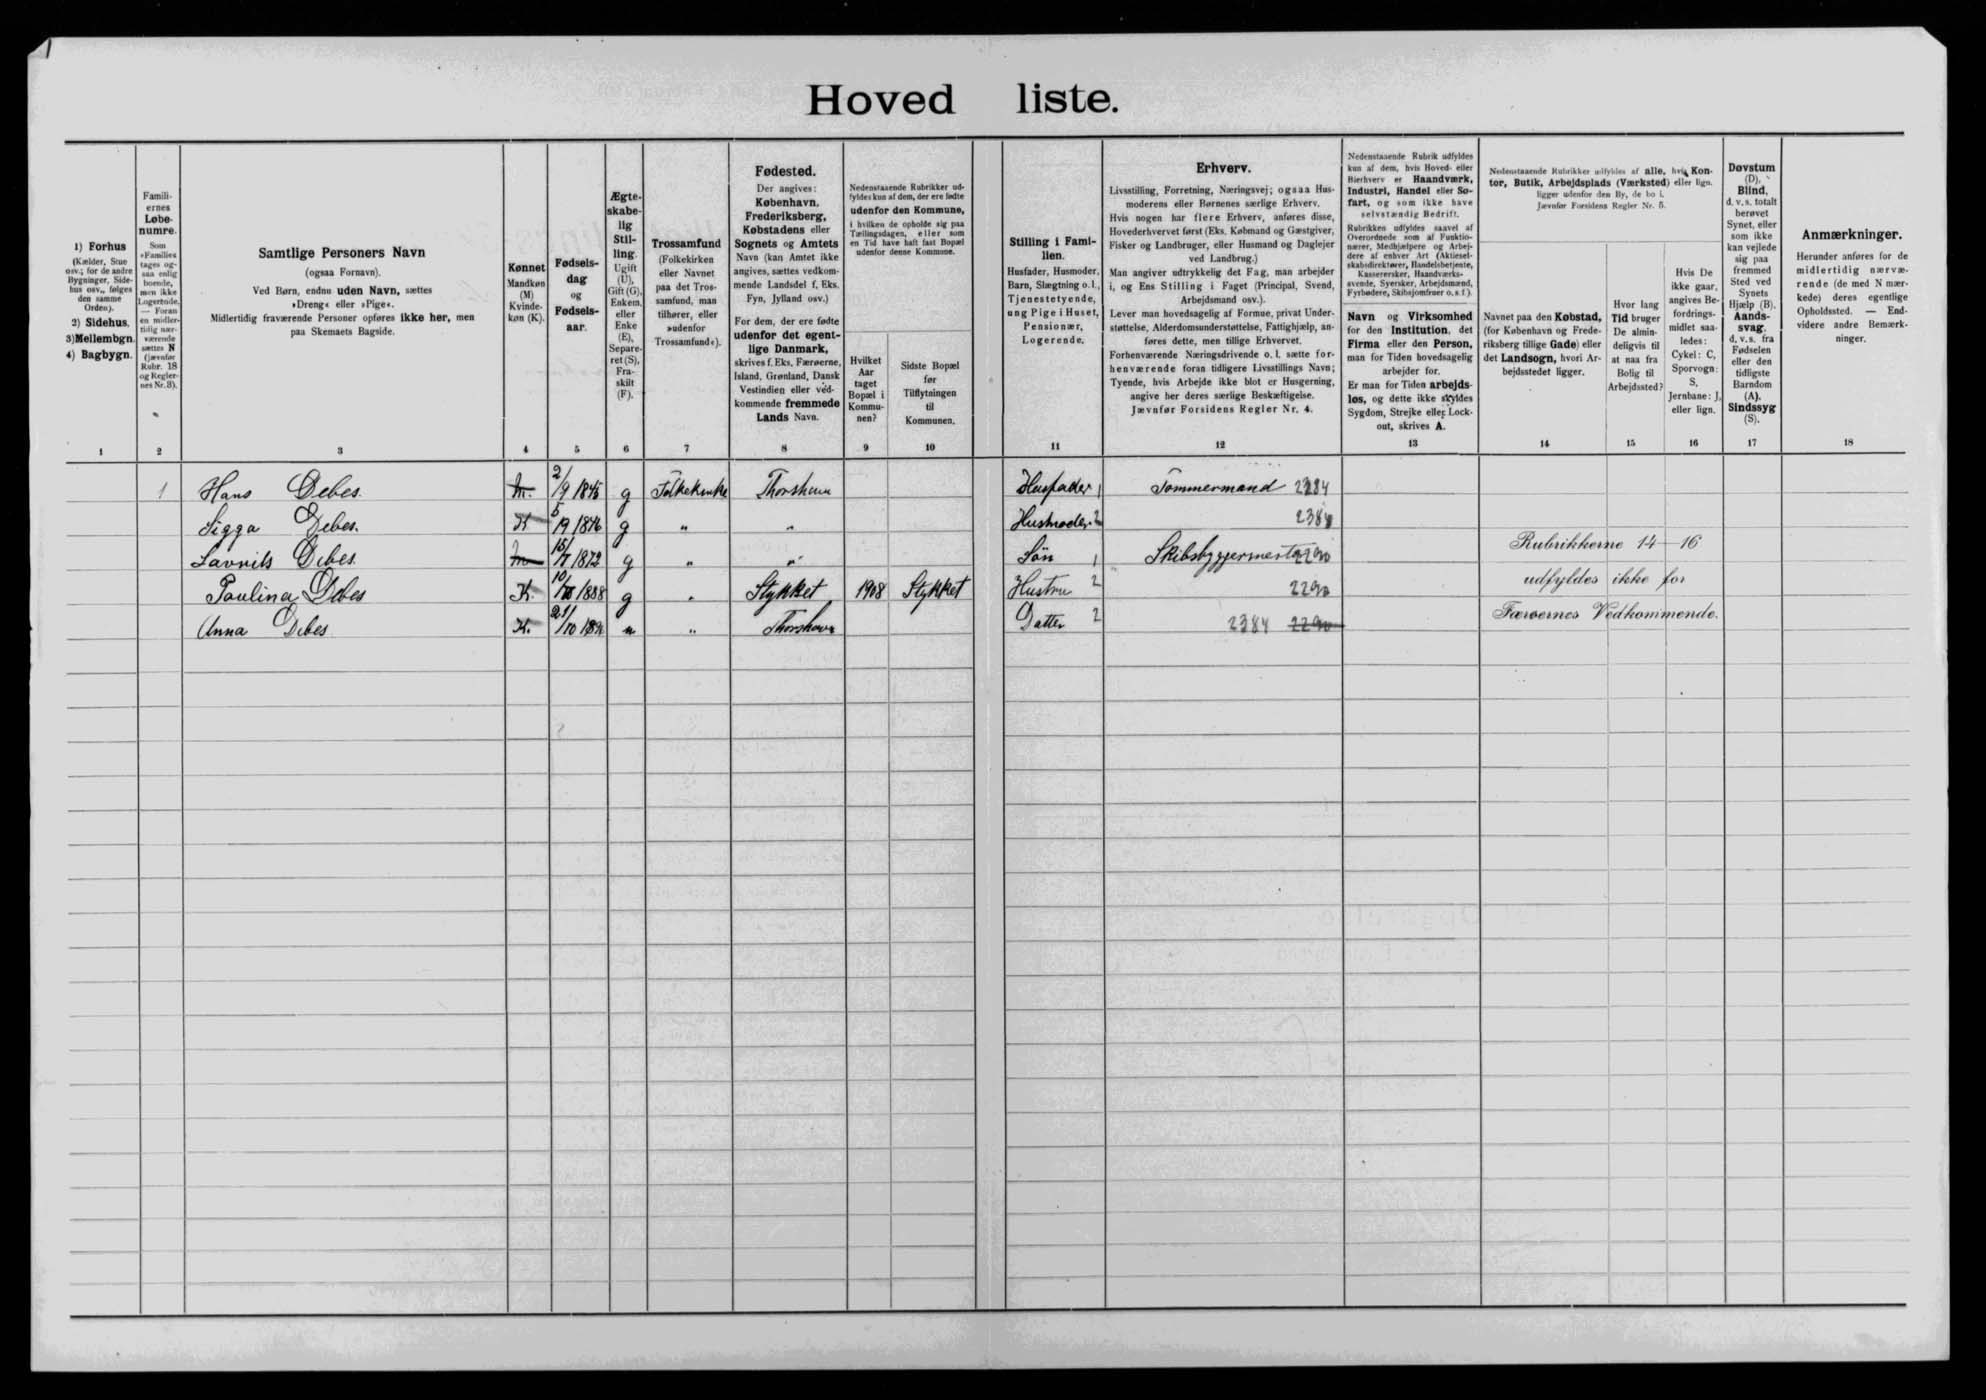 Hovedliste.
1) Forhus
(Kælder, Stue
osv.; for de andre
Bygninger, Side-
hus osv., følges
den samme
Orden).
2) Sidehus.
3) Mellembgn.
4) Bagbygn.
Famili-
ernes
Løbe-
numre.
Som
»Familie«
tages og-
saa enlig
boende,
men ikke
Logerende.
— Foran
en midler-
tidig nær-
værende
sættes N
(jævnfør
Rubr. 18
og Regler-
nes Nr. 3).
Samtlige Personers Navn
(ogsaa Fornavn).
Ved Børn, endnu uden Navn, sættes
»Dreng« eller »Pige«.
Midlertidig fraværende Personer opføres ikke her, men
paa Skemaets Bagside.
Kønnet
Mandkøn
(M)
Kvinde-
køn (K).
Fødsels-
dag
og
Fødsels-
aar.
Ægte-
skabe-
lig
Stil-
ling.
Ugift
(U),
Gift (G),
Enkem.
eller
Enke
(E),
Separe-
ret (S),
Fra-
skilt
(F).
Trossamfund
(Folkekirken
eller Navnet
paa det Tros-
samfund, man
tilhører, eller
»udenfor
Trossamfund«).
Fødested.
Der angives:
København,
Frederiksberg,
Købstadens eller
Sognets og Amtets
Navn (kan Amtet ikke
angives, sættes vedkom-
mende Landsdel f. Eks.
Fyn, Jylland osv.)
For dem, der ere fødte
udenfor det egent-
lige Danmark,
skrives f. Eks. Færøerne,
Island, Grønland, Dansk
Vestindien eller ved-
kommende fremmede
Lands Navn.
Nedenstaaende Rubrikker ud-
fyldes kun af dem, der ere fødte
udenfor den Kommune,
i hvilken de opholde sig paa
Tællingsdagen, eller som
en Tid have haft fast Bopæl
udenfor denne Kommune.
Hvilket
Aar
taget
Bopæl i
Kommu-
nen?
Sidste Bopæl
før
Tilflytningen
til
Kommunen.
Stilling i Fami-
lien.
Husfader, Husmoder,
Barn, Slægtning o. l.,
Tjenestetyende,
ung Pige i Huset,
Pensionær,
Logerende.
Erhverv.
Livsstilling, Forretning, Næringsvej; ogsaa Hus-
moderens eller Børnenes særlige Erhverv.
Hvis nogen har flere Erhverv, anføres disse,
Hovederhvervet først (Eks. Købmand og Gæstgiver,
Fisker og Landbruger, eller Husmand og Daglejer
ved Landbrug.)
Man angiver udtrykkelig det Fag, man arbejder
i, og Ens Stilling i Faget (Principal, Svend,
Arbejdsmand osv.).
Lever man hovedsagelig af Formue, privat Under-
støttelse, Alderdomsunderstøttelse, Fattighjælp, an-
føres dette, men tillige Erhvervet.
Forhenværende Næringsdrivende o. l. sætte for-
henværende foran tidligere Livsstillings Navn;
Tyende, hvis Arbejde ikke blot er Husgerning,
angive her deres særlige Beskæftigelse.
Jævnfør Forsidens Regler Nr. 4.
Nedenstaaende Rubrik udfyldes
kun af dem, hvis Hoved- eller
Bierhverv er Haandværk,
Industri, Handel eller Sø-
fart, og som ikke have
selvstændig Bedrift.
Rubrikken udfyldes saavel af
Overordnede som af Funktio-
nærer, Medhjælpere og Arbej-
dere af enhver Art (Aktiesel-
skabsdirektører, Handelsbetjente,
Kasserersker, Haandværks-
svende, Syersker, Arbejdsmænd,
Fyrbødere, Skibsjomfruer o. s. f.).
Navn og Virksomhed
for den Institution, det
Firma eller den Person,
man for Tiden hovedsagelig
arbejder for.
Er man for Tiden arbejds-
løs, og dette ikke skyldes
Sygdom, Strejke eller Lock-
out, skrives A.
Nedenstaaende Rubrikker udfyldes af alle, hvis Kon-
tor, Butik, Arbejdsplads (Værksted) eller lign.
ligger udenfor den By, de bo i.
Jævnfør Forsidens Regler Nr. 5.
Navnet paa den Købstad,
(for København og Frede-
riksberg tillige Gade) eller
det Landsogn, hvori Ar-
bejdsstedet ligger.
Hvor lang
Tid bruger
De almin-
deligvis til
at naa fra
Bolig til
Arbejdssted?
Hvis De
ikke gaar,
angives Be-
fordrings-
midlet saa-
ledes:
Cykel: C,
Sporvogn:
S,
Jernbane: J,
eller lign.
Døvstum
(D),
Blind,
d. v. s. totalt
berøvet
Synet, eller
som ikke
kan vejlede
sig paa
fremmed
Sted ved
Synets
Hjælp (B).
Aands-
svag,
d. v. s. fra
Fødselen
eller den
tidligste
Barndom
(A),
Sindssyg
(S).
Anmærkninger.
Herunder anføres for de
midlertidig nærvæ-
rende (de med N mær-
kede) deres egentlige
Opholdssted. — End-
videre andre Bemærk-
ninger.
1 2 3 4 5 6 7 8 9 10 11 12 13 14 15 16 17 18
1 Hans Debes. M. 2/9 1845 g Folkekirke Thorshavn Husfader 1 Tømmermand 2384
Sigga Debes. K 5 19 1846 g " " Husmoder 2 2384
Debes. M 15/7 1872 g " " Søn 1 2290
Paulina Debes K. 10/ 1888 g " Stykket 1908 Stykket Hustru 2 2290
Anna Debes K. 21/10 " " Thorshavn Datter 2 2384 2290
Rubrikkerne 14–16
udfyldes ikke for
Færøernes Vedkommende.